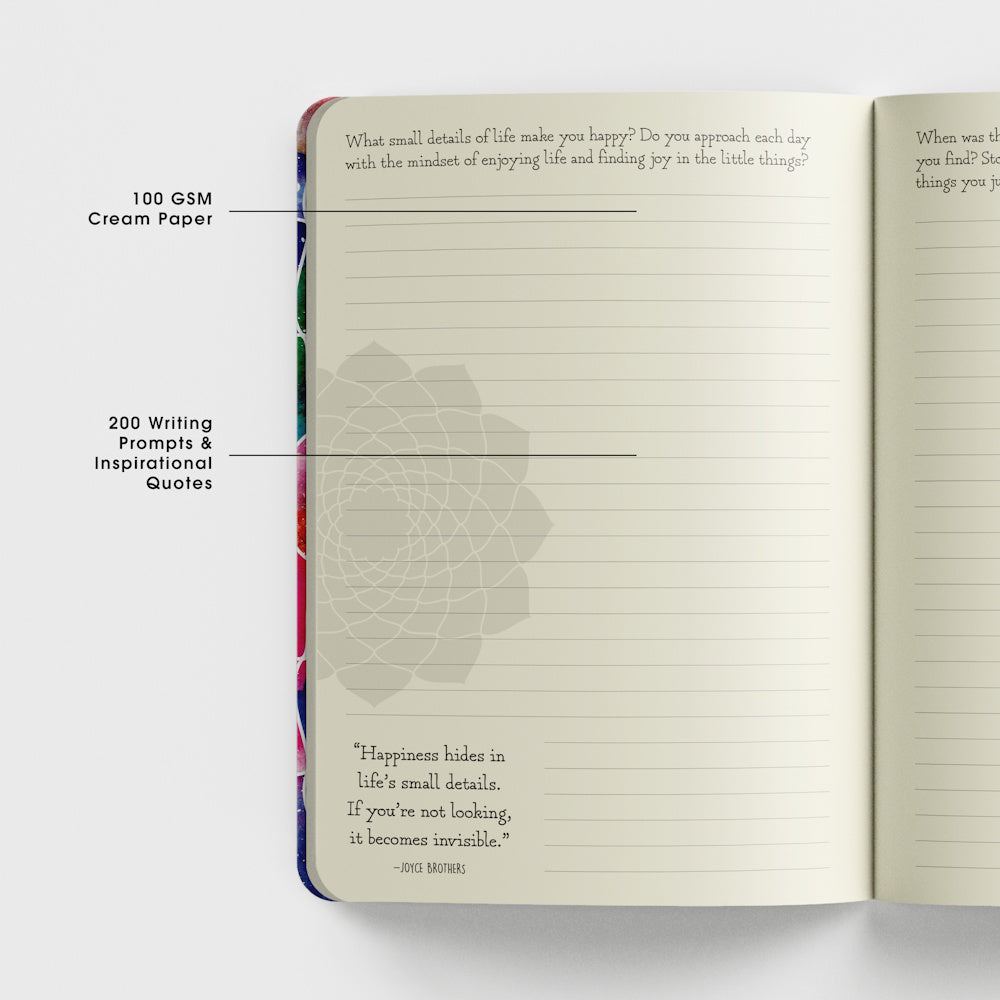 What small details of life make you happy? Do you approach each day
with the mindset of enjoying life and finding joy in the little things?
100 GSM
Cream Paper
200 Writing
Prompts &
Inspirational
Quotes
“Happiness hides in
life’s small details.
If you’re not looking,
it becomes invisible.”
–JOYCE BROTHERS
When was
you find?
things you